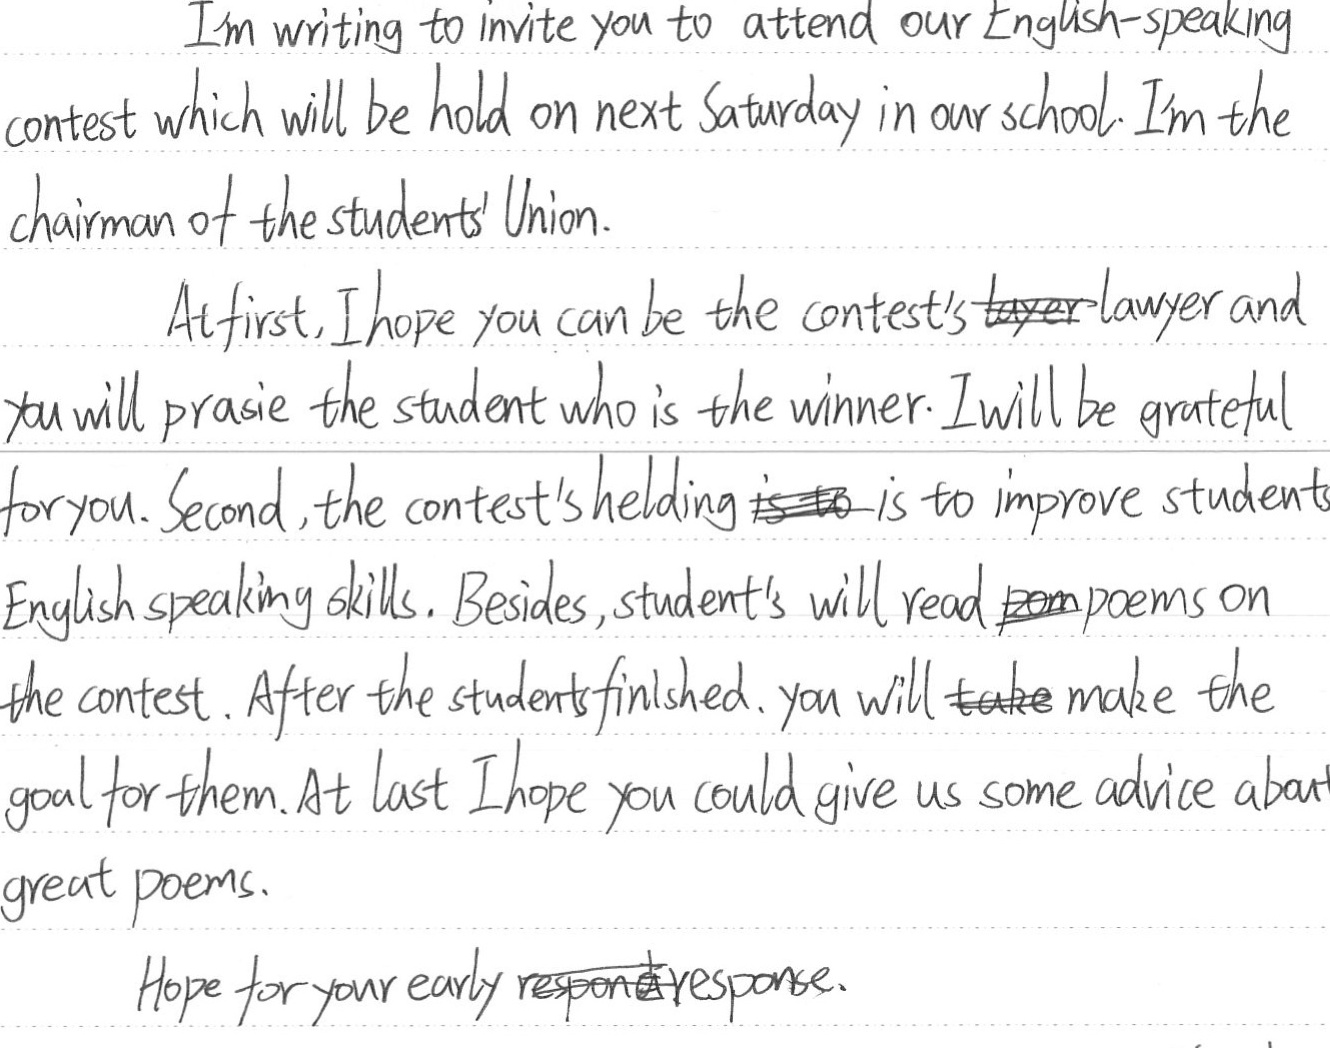 I'm writing to invite you to attend our English-speaking
contest which will be hold on next Saturday in our school. I'm the
chairman of the students' Union.
At first, I hope you can be the contest's lawyer and
you will prasie the student who is the winner. I will be grateful
for you. Second, the contest's helding is to improve students
English speaking skills. Besides, student's will read poems on
the contest. After the students finished. you will make the
goal for them. At last I hope you could give us some advice about
great poems.
Hope for your early response.